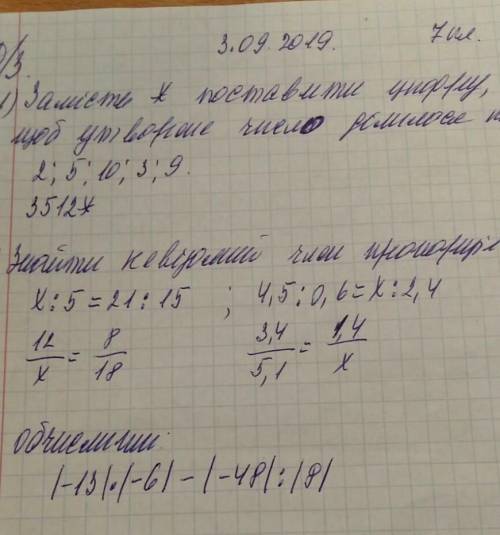 Д/З. 3.09.2019. 7 кл.
1) Замість * поставити цифру,
щоб утворене число ділилося н
2; 5; 10; 3; 9.
3512*
Знайти невідомий член пропорції
x : 5 = 21 : 15 ; 4,5 : 0,6 = x : 2,4
12/x = 8/18 3,4/5,1 = 1,4/x
Обчислити:
|-13|·|-6| - |-48| : |8|